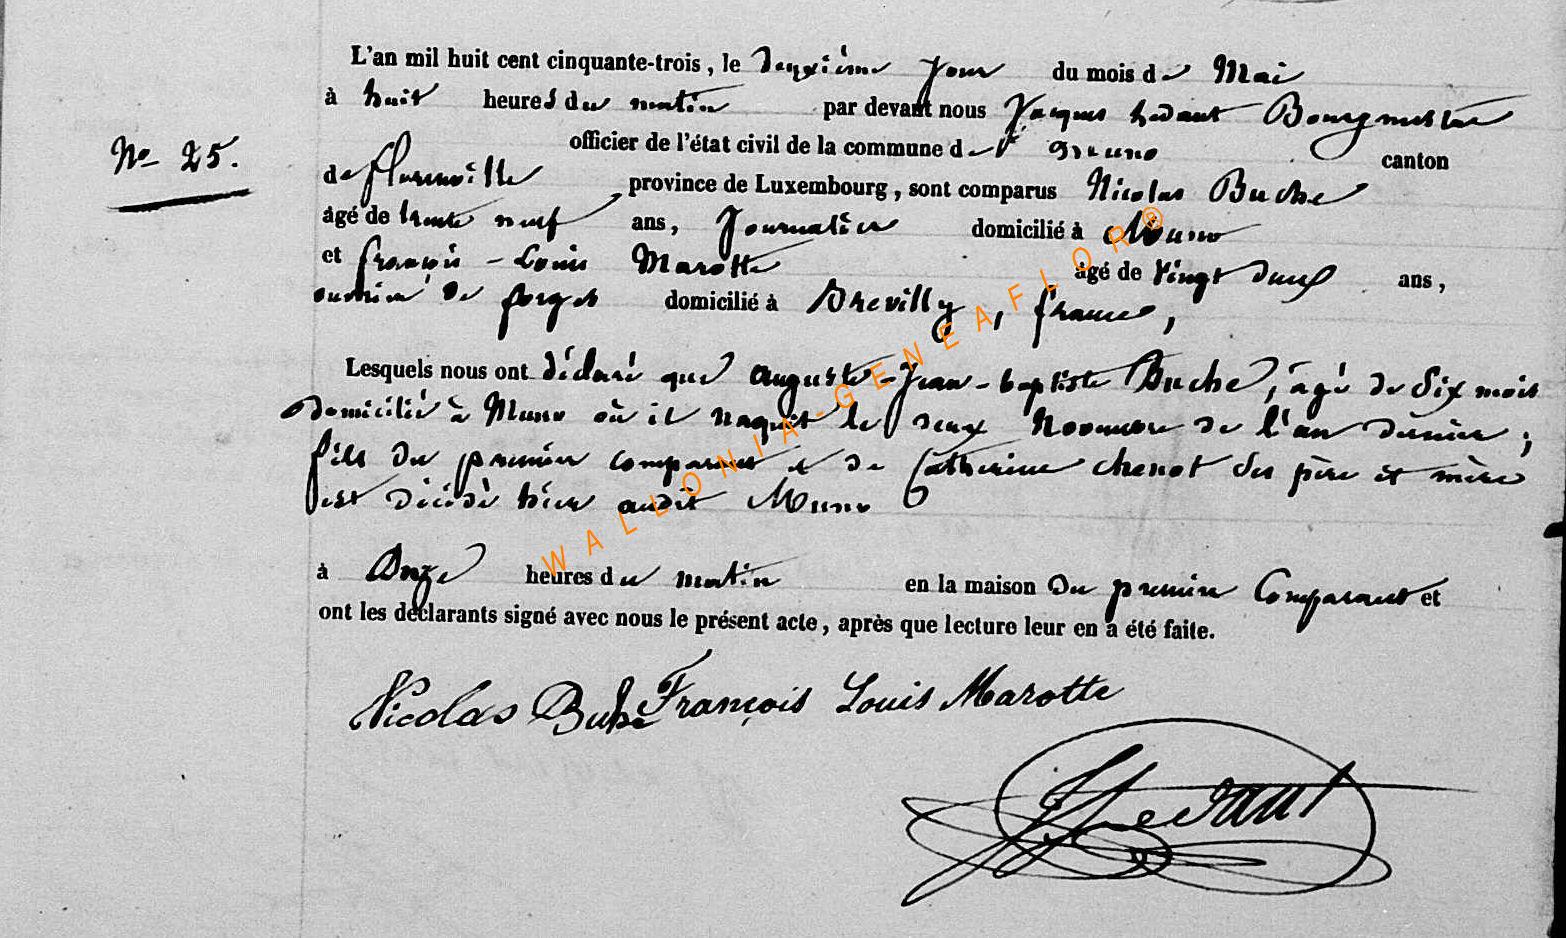 L'an mil huit cent cinquante-trois, le deuxième jour du mois de Mai
à huit heures du matin par devant nous Jacques hedant Bourgmestre
officier de l'état civil de la commune de Muno canton
No 25.
de florenville province de Luxembourg, sont comparus Nicolas Buche
âgé de trente neuf ans, Journalier domicilié à Muno
et françois-Louis Marotte âgé de vingt deux ans,
ouvrier de forges domicilié à Brevilly, france,
Lesquels nous ont déclaré que auguste-Jean-baptiste Buche, âgé de Six mois
domicilié à Muno où il naquit le deux Novembre de l'an dernier,
fils du premier comparant et de Catherine chenot ses père et mère
est décédé hier audit Muno
à Onze heures du matin en la maison du premier Comparant et
ont les déclarants signé avec nous le présent acte, après que lecture leur en a été faite.
Nicolas Buche François Louis Marotte
Hedant
WALLONIA-GENEAFLOR®